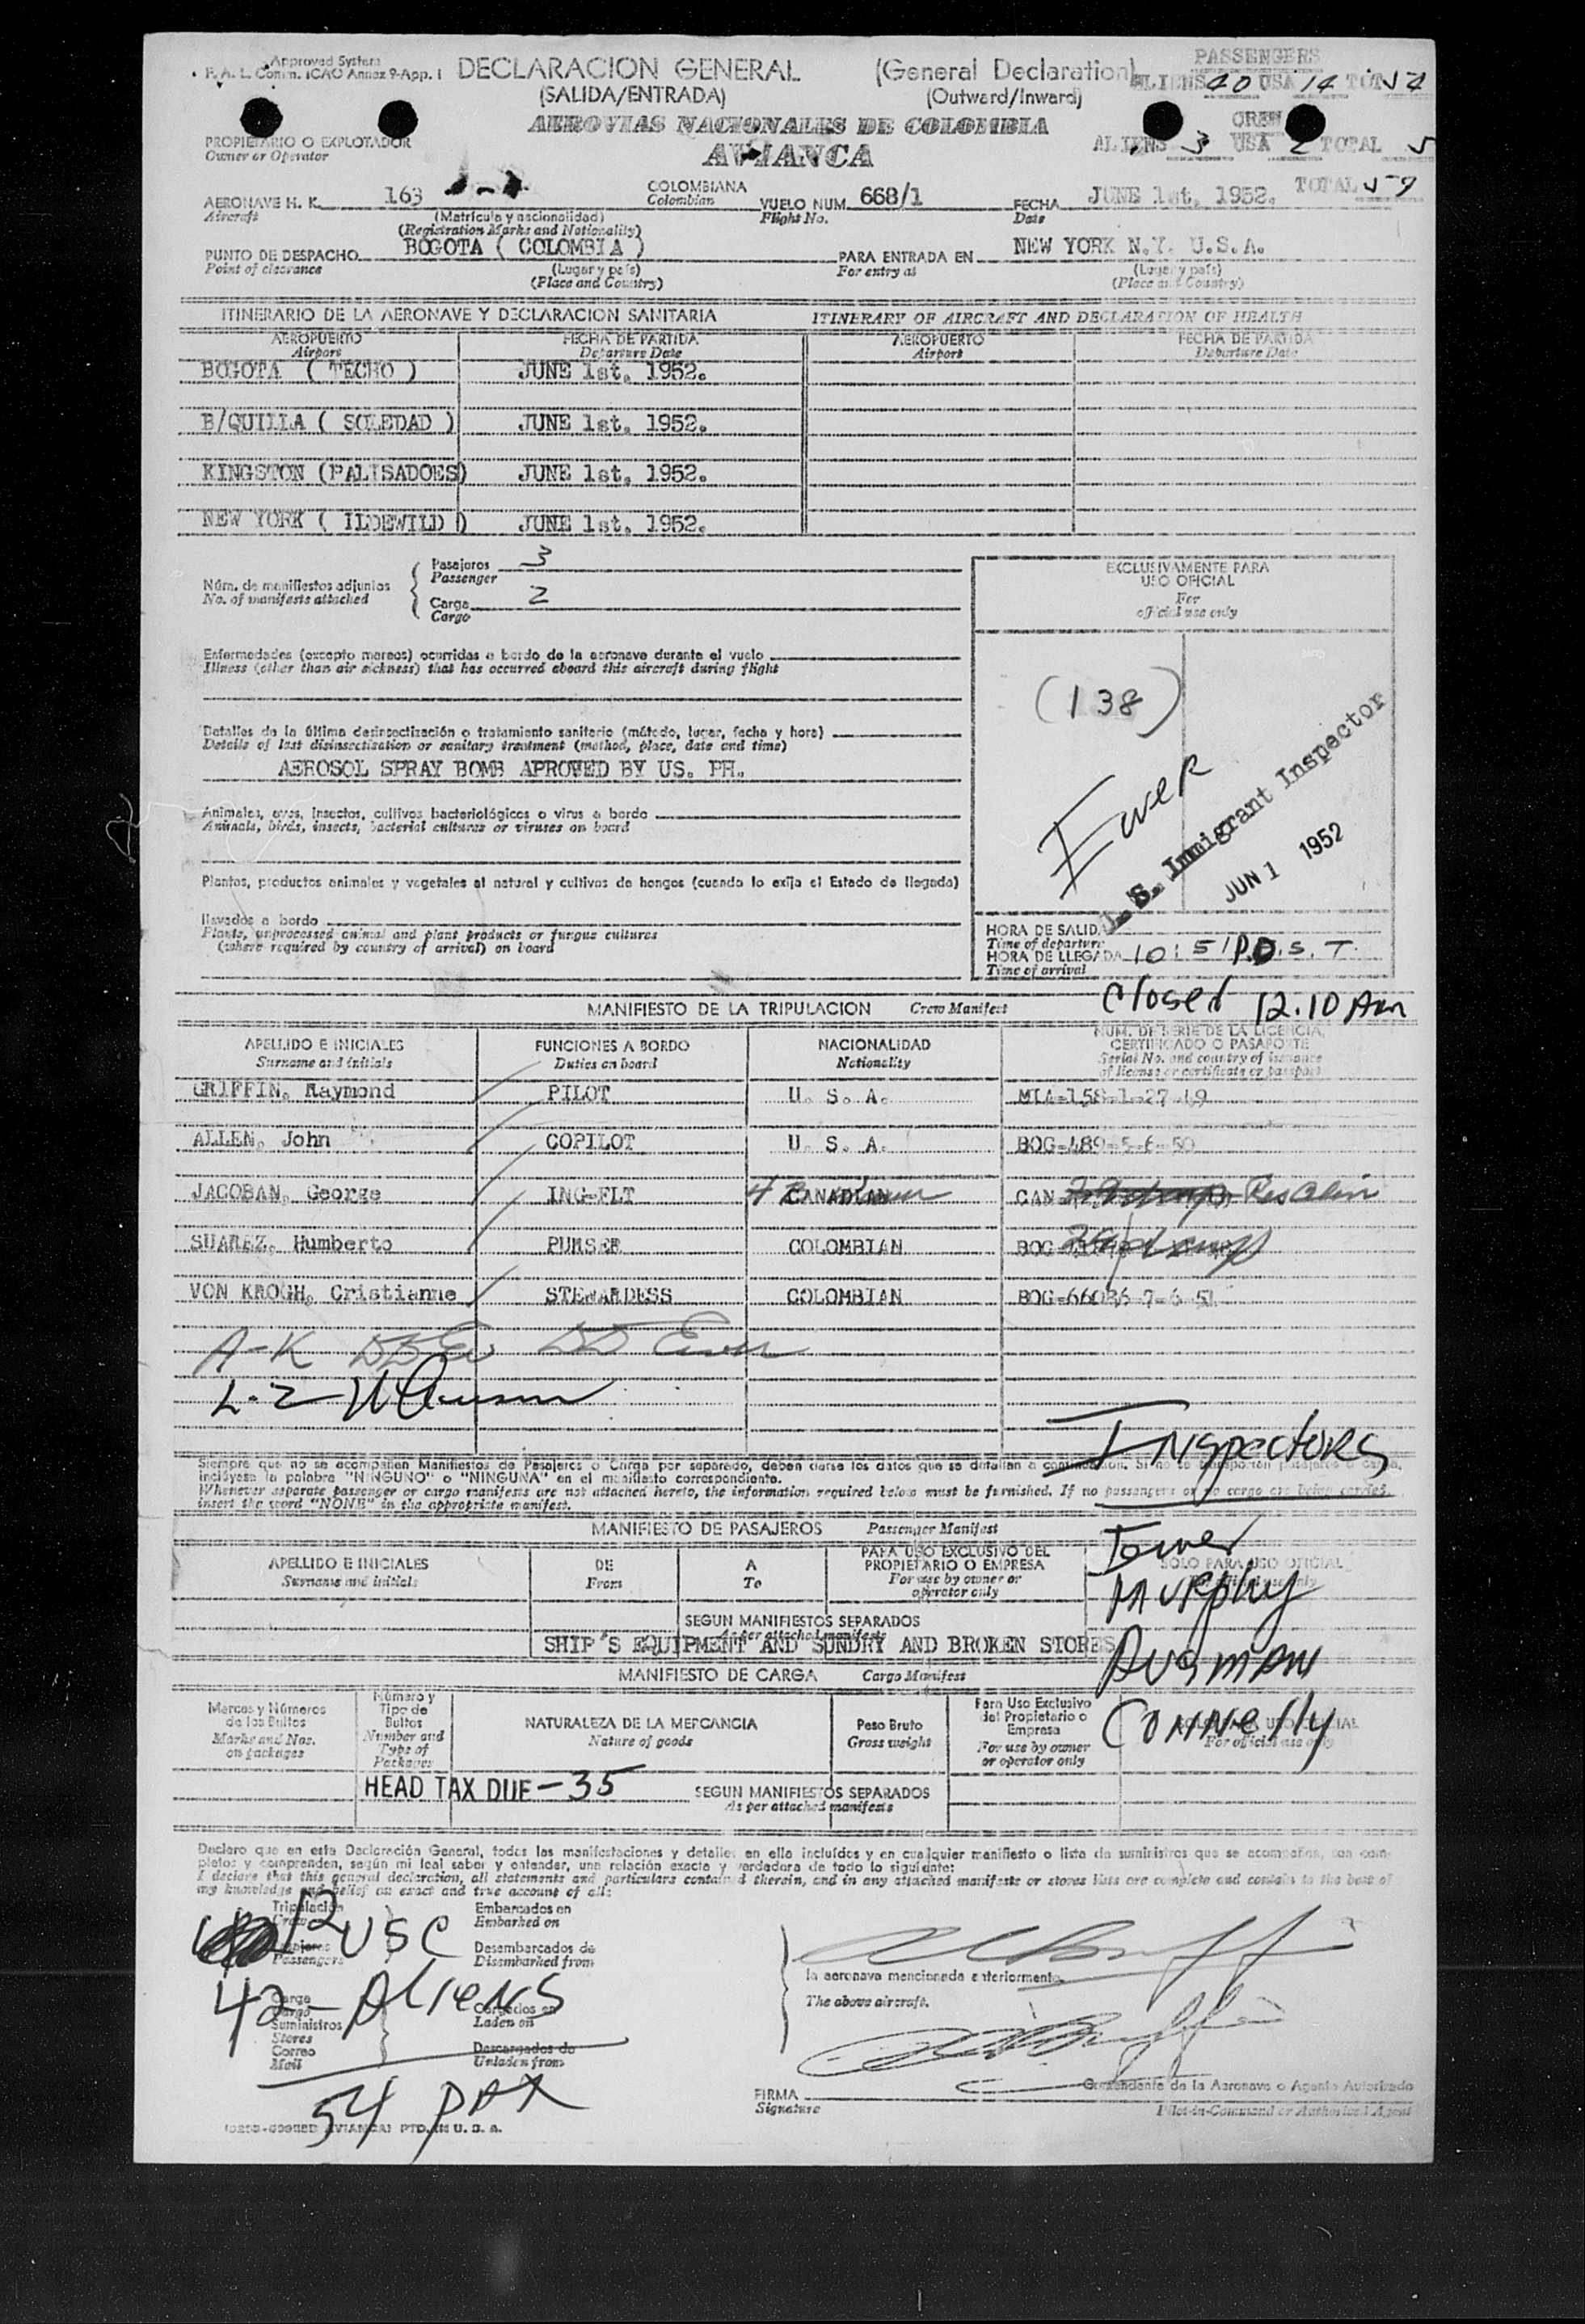 Approved System
F. A. L. Comm. ICAO Annex 9-App. 1
DECLARACION GENERAL (General Declaration)
(SALIDA/ENTRADA) (Outward/Inward)
PASSENGERS
ALIENS 40 USA 14 TOT 54
AEROVIAS NACIONALES DE COLOMBIA
AVIANCA
CREW
ALIENS 3 USA 2 TOTAL 5
TOTAL 59
PROPIETARIO O EXPLOTADOR
Owner or Operator
AERONAVE H. K. 163 COLOMBIANA VUELO NUM. 668/1 FECHA JUNE 1st, 1952.
Aircraft (Matrícula y nacionalidad) Colombian Flight No. Date
(Registration Marks and Nationality)
PUNTO DE DESPACHO BOGOTA ( COLOMBIA ) PARA ENTRADA EN NEW YORK N.Y. U.S.A.
Point of clearance (Lugar y país) For entry at (Lugar y país)
(Place and Country) (Place and Country)
ITINERARIO DE LA AERONAVE Y DECLARACION SANITARIA ITINERARY OF AIRCRAFT AND DECLARATION OF HEALTH
AEROPUERTO FECHA DE PARTIDA AEROPUERTO FECHA DE PARTIDA
Airport Departure Date Airport Departure Date
BOGOTA ( TECHO ) JUNE 1st, 1952.
B/QUILLA ( SOLEDAD ) JUNE 1st, 1952.
KINGSTON (PALISADOES) JUNE 1st, 1952.
NEW YORK ( ILDEWILD ) JUNE 1st, 1952.
Núm. de manifiestos adjuntos
No. of manifests attached
Pasajeros 3
Passenger
Carga 2
Cargo
EXCLUSIVAMENTE PARA
USO OFICIAL
For
official use only
Enfermedades (excepto mareos) ocurridas a bordo de la aeronave durante el vuelo
Illness (other than air sickness) that has occurred aboard this aircraft during flight
(138)
Detalles de la última desinsectización o tratamiento sanitario (método, lugar, fecha y hora)
Details of last disinsectization or sanitary treatment (method, place, date and time)
AEROSOL SPRAY BOMB APROVED BY US. PH.
Immigrant Inspector
JUN 1 1952
Animales, aves, insectos, cultivos bacteriológicos o virus a bordo
Animals, birds, insects, bacterial cultures or viruses on board
Plantas, productos animales y vegetales al natural y cultivos de hongos (cuando lo exija el Estado de llegada)
llevados a bordo
Plants, unprocessed animal and plant products or fungus cultures
(where required by country of arrival) on board
HORA DE SALIDA
Time of departure
HORA DE LLEGADA 10:51 P.D.S.T.
Time of arrival
Closed 12.10 AM
MANIFIESTO DE LA TRIPULACION Crew Manifest
APELLIDO E INICIALES FUNCIONES A BORDO NACIONALIDAD NUM. DE SERIE DE LA LICENCIA, CERTIFICADO O PASAPORTE
Surname and initials Duties on board Nationality Serial No. and country of issuance of license or certificate or passport
GRIFFIN, Raymond PILOT U. S. A. MIA-158-1-27-49
ALLEN, John COPILOT U. S. A. BOG-489-5-6-50
JACOBAN, George ING-FLT CANADIAN CAN Res Alien
SUAREZ, Humberto PURSER COLOMBIAN BOG
VON KROGH, Cristianne STEWARDESS COLOMBIAN BOG-66036 7-6-51
A-K
L-Z
Inspectors
Siempre que no se acompañen Manifiestos de Pasajeros o Carga por separado, deben darse los datos que se detallan a continuación. Si no se transportan pasajeros o carga,
inclúyase la palabra "NINGUNO" o "NINGUNA" en el manifiesto correspondiente.
Whenever separate passenger or cargo manifests are not attached hereto, the information required below must be furnished. If no passengers or no cargo are being carried,
insert the word "NONE" in the appropriate manifest.
MANIFIESTO DE PASAJEROS Passenger Manifest
APELLIDO E INICIALES DE A PARA USO EXCLUSIVO DEL PROPIETARIO O EMPRESA SOLO PARA USO OFICIAL
Surname and initials From To For use by owner or operator only
Murphy
SEGUN MANIFIESTOS SEPARADOS
As per attached manifests
SHIP'S EQUIPMENT AND SUNDRY AND BROKEN STORES
MANIFIESTO DE CARGA Cargo Manifest
Connelly
Marcas y Números de los Bultos Número y Tipo de Bultos NATURALEZA DE LA MERCANCIA Peso Bruto Para Uso Exclusivo del Propietario o Empresa
Marks and Nos. on packages Number and Type of Packages Nature of goods Gross weight For use by owner or operator only For official use only
HEAD TAX DUE - 35 SEGUN MANIFIESTOS SEPARADOS
As per attached manifests
Declaro que en esta Declaración General, todas las manifestaciones y detalles en ella incluídos y en cualquier manifiesto o lista de suministros que se acompañan, son com-
pletos y comprenden, según mi leal saber y entender, una relación exacta y verdadera de todo lo siguiente:
I declare that this general declaration, all statements and particulars contained therein, and in any attached manifests or stores lists are complete and contain to the best of
my knowledge and belief an exact and true account of all:
Tripulación
Crew
Passengers
Embarcados en
Embarked on
Desembarcados de
Disembarked from
12 USC
42 - Aliens
Carga
Cargo
Suministros
Stores
Correo
Mail
Cargados en
Laden on
Descargados de
Unladen from
54 PAX
la aeronave mencionada anteriormente.
The above aircraft.
FIRMA
Signature
Comandante de la Aeronave o Agente Autorizado
Pilot-in-Command or Authorized Agent
AVIANCA) PTD. IN U. S. A.